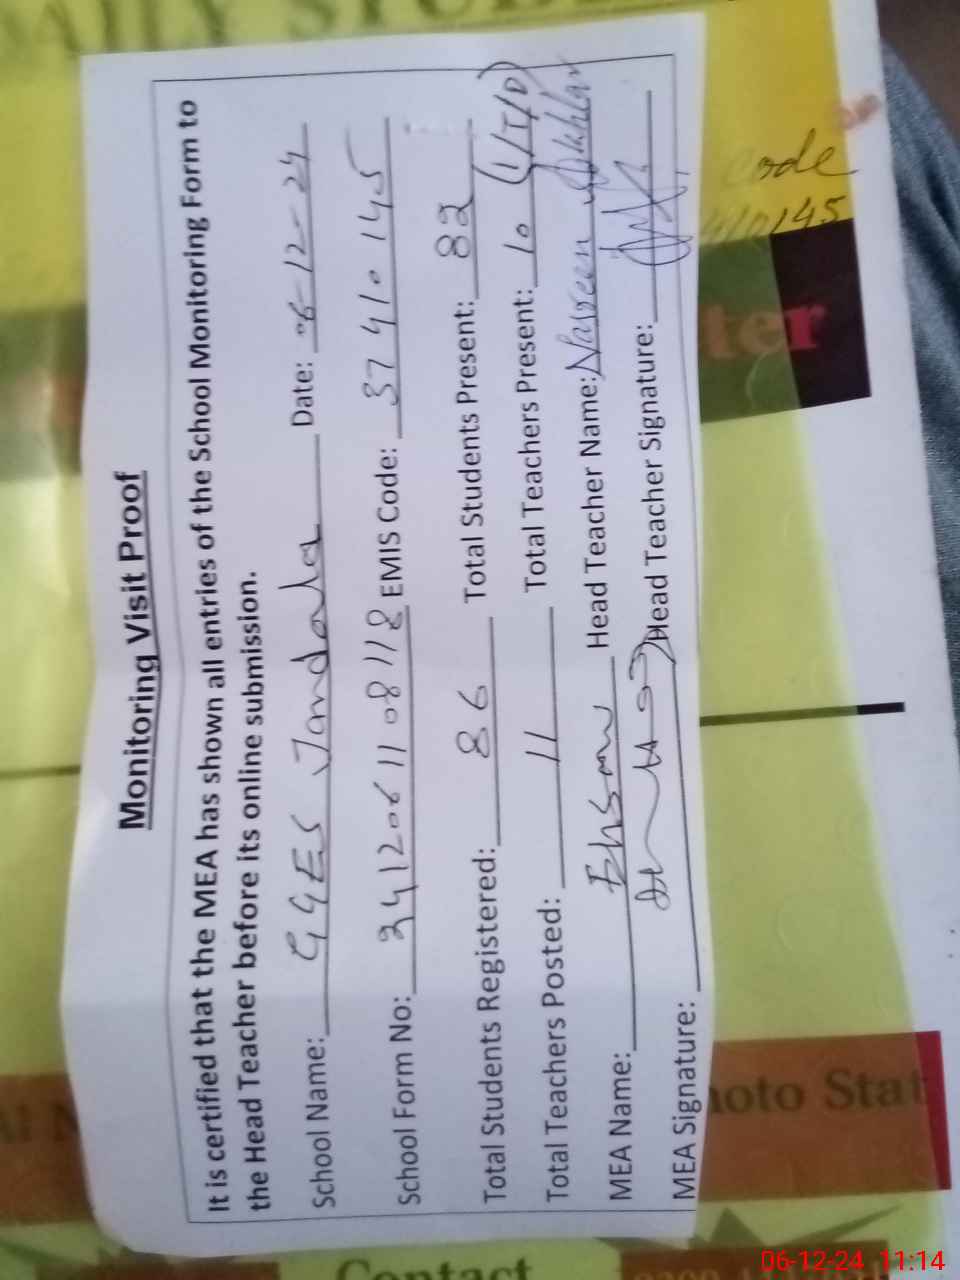 Monitoring Visit Proof
It is certified that the MEA has shown all entries of the School Monitoring Form to
the Head Teacher before its online submission.
School Name: GGES Jandala Date: 06-12-24
School Form No: 2412061108118 EMIS Code: 37410145
Total Students Registered: 86 Total Students Present: 82
Total Teachers Posted: 11 Total Teachers Present: 10 (1/T/D)
MEA Name: Ehsan Head Teacher Name: Nasreen Akhtar
MEA Signature: Head Teacher Signature:
DAILY
code
10145
ter
hoto Stat
Contact
06-12-24 11:14